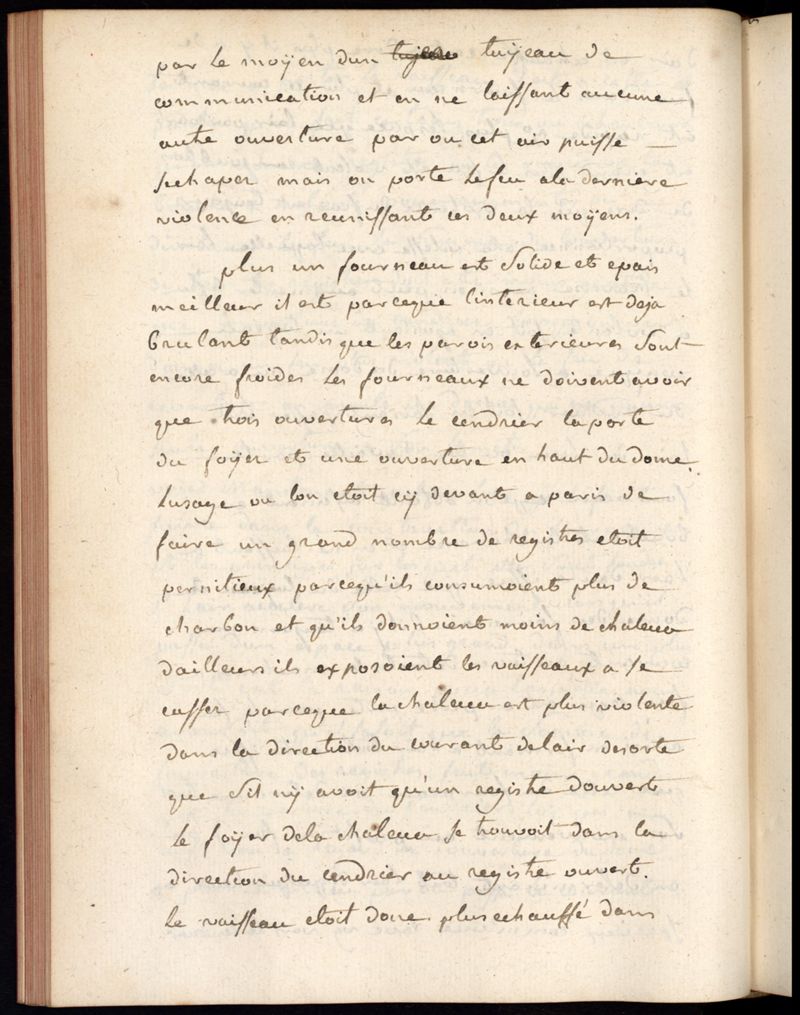 par le moÿen dun tuÿeau tuÿeau de
communication et en ne laissant aucune
autre ouverture par ou cet air puisse
sechaper mais on porte le feu ala derniere
violence en reunissant ces deux moÿens.
plus un fourneau est solide et epais
meilleur il est parceque linterieur est deja
brulant tandis que les parois exterieures sont
encore froides les fourneaux ne doivent avoir
que trois ouvertures le cendrier la porte
du foÿer et une ouverture en haut du dome.
lusage ou lon etoit cÿ devant a paris de
faire un grand nombre de registres etoit
pernitieux parcequ'ils consumoient plus de
charbon et qu'ils donnoient moins de chaleur
dailleurs ils exposoient les vaisseaux a se
casser parceque la chaleur est plus violente
dans la direction du courant delair desorte
que sil nÿ avoit qu'un registre douvert
le foÿer dela chaleur se trouvoit dans la
direction du cendrier au registre ouvert.
le vaisseau etoit donc plus echauffé dans